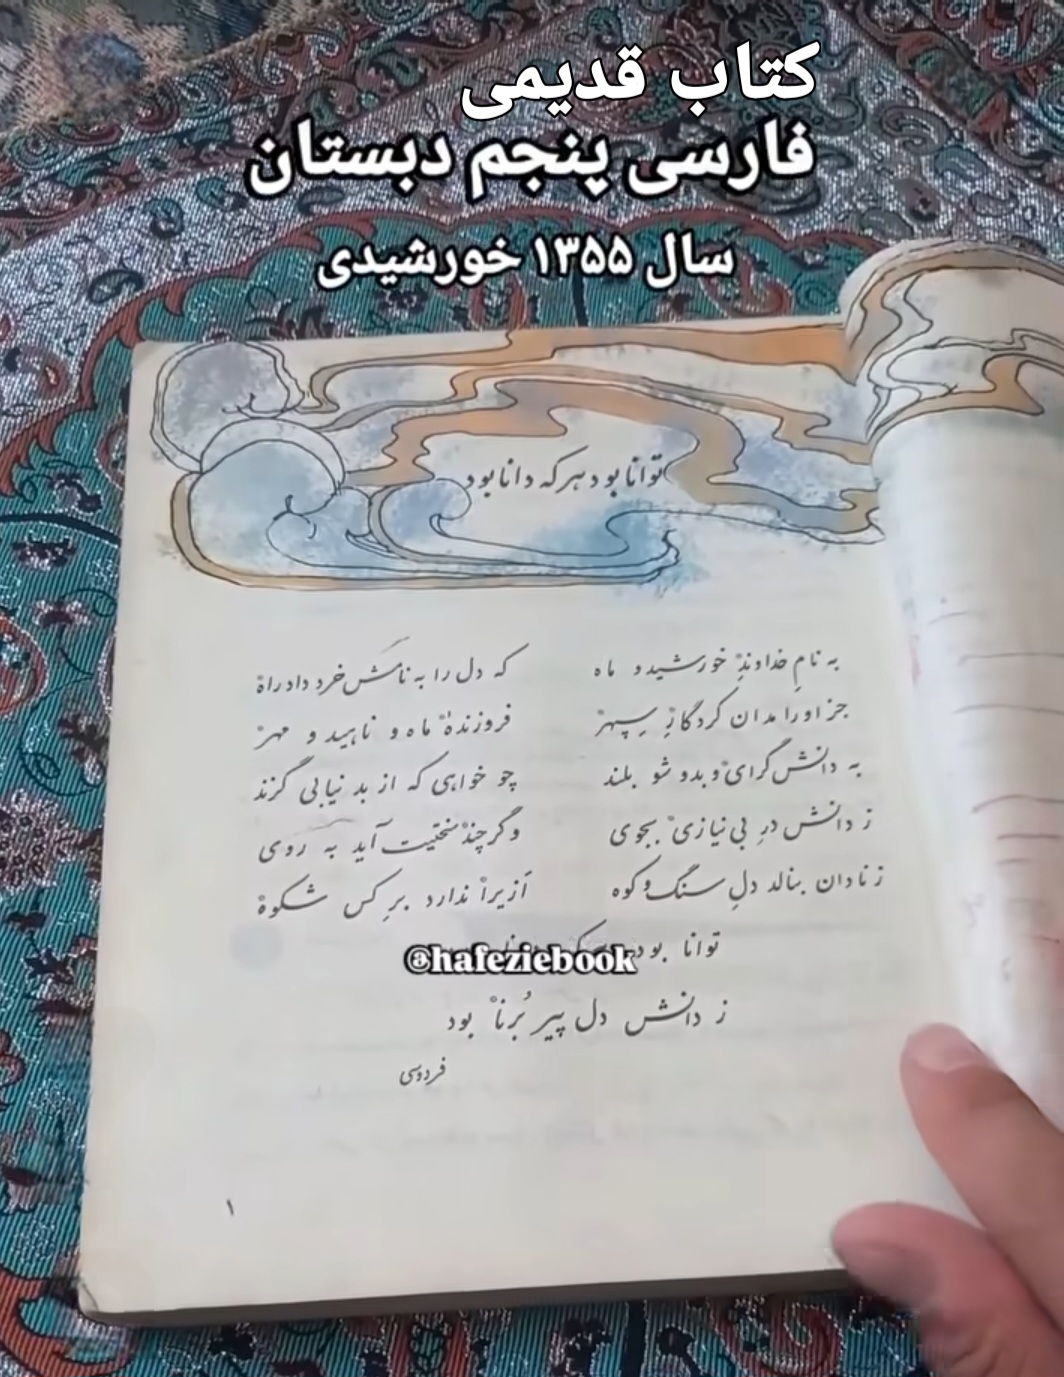 کتاب قدیمی
فارسی پنجم دبستان
سال ۱۳۵۵ خورشیدی
توانا بود هر که دانا بود
به نامِ خداوندِ خورشید و ماه که دل را به نامش خرد داد راه
جز او را مدان کردگارِ سپهر فروزندهٔ ماه و ناهید و مهر
به دانش گرای و بدو شو بلند چو خواهی که از بد نیابی گزند
ز دانش درِ بی نیازی بجوی وگر چند سختیت آید به روی
ز نادان بنالد دلِ سنگ و کوه ازیرا ندارد برِ کس شکوه
توانا بود
@hafeziebook
ز دانش دل پیر بُرنا بود
فردوسی
۱